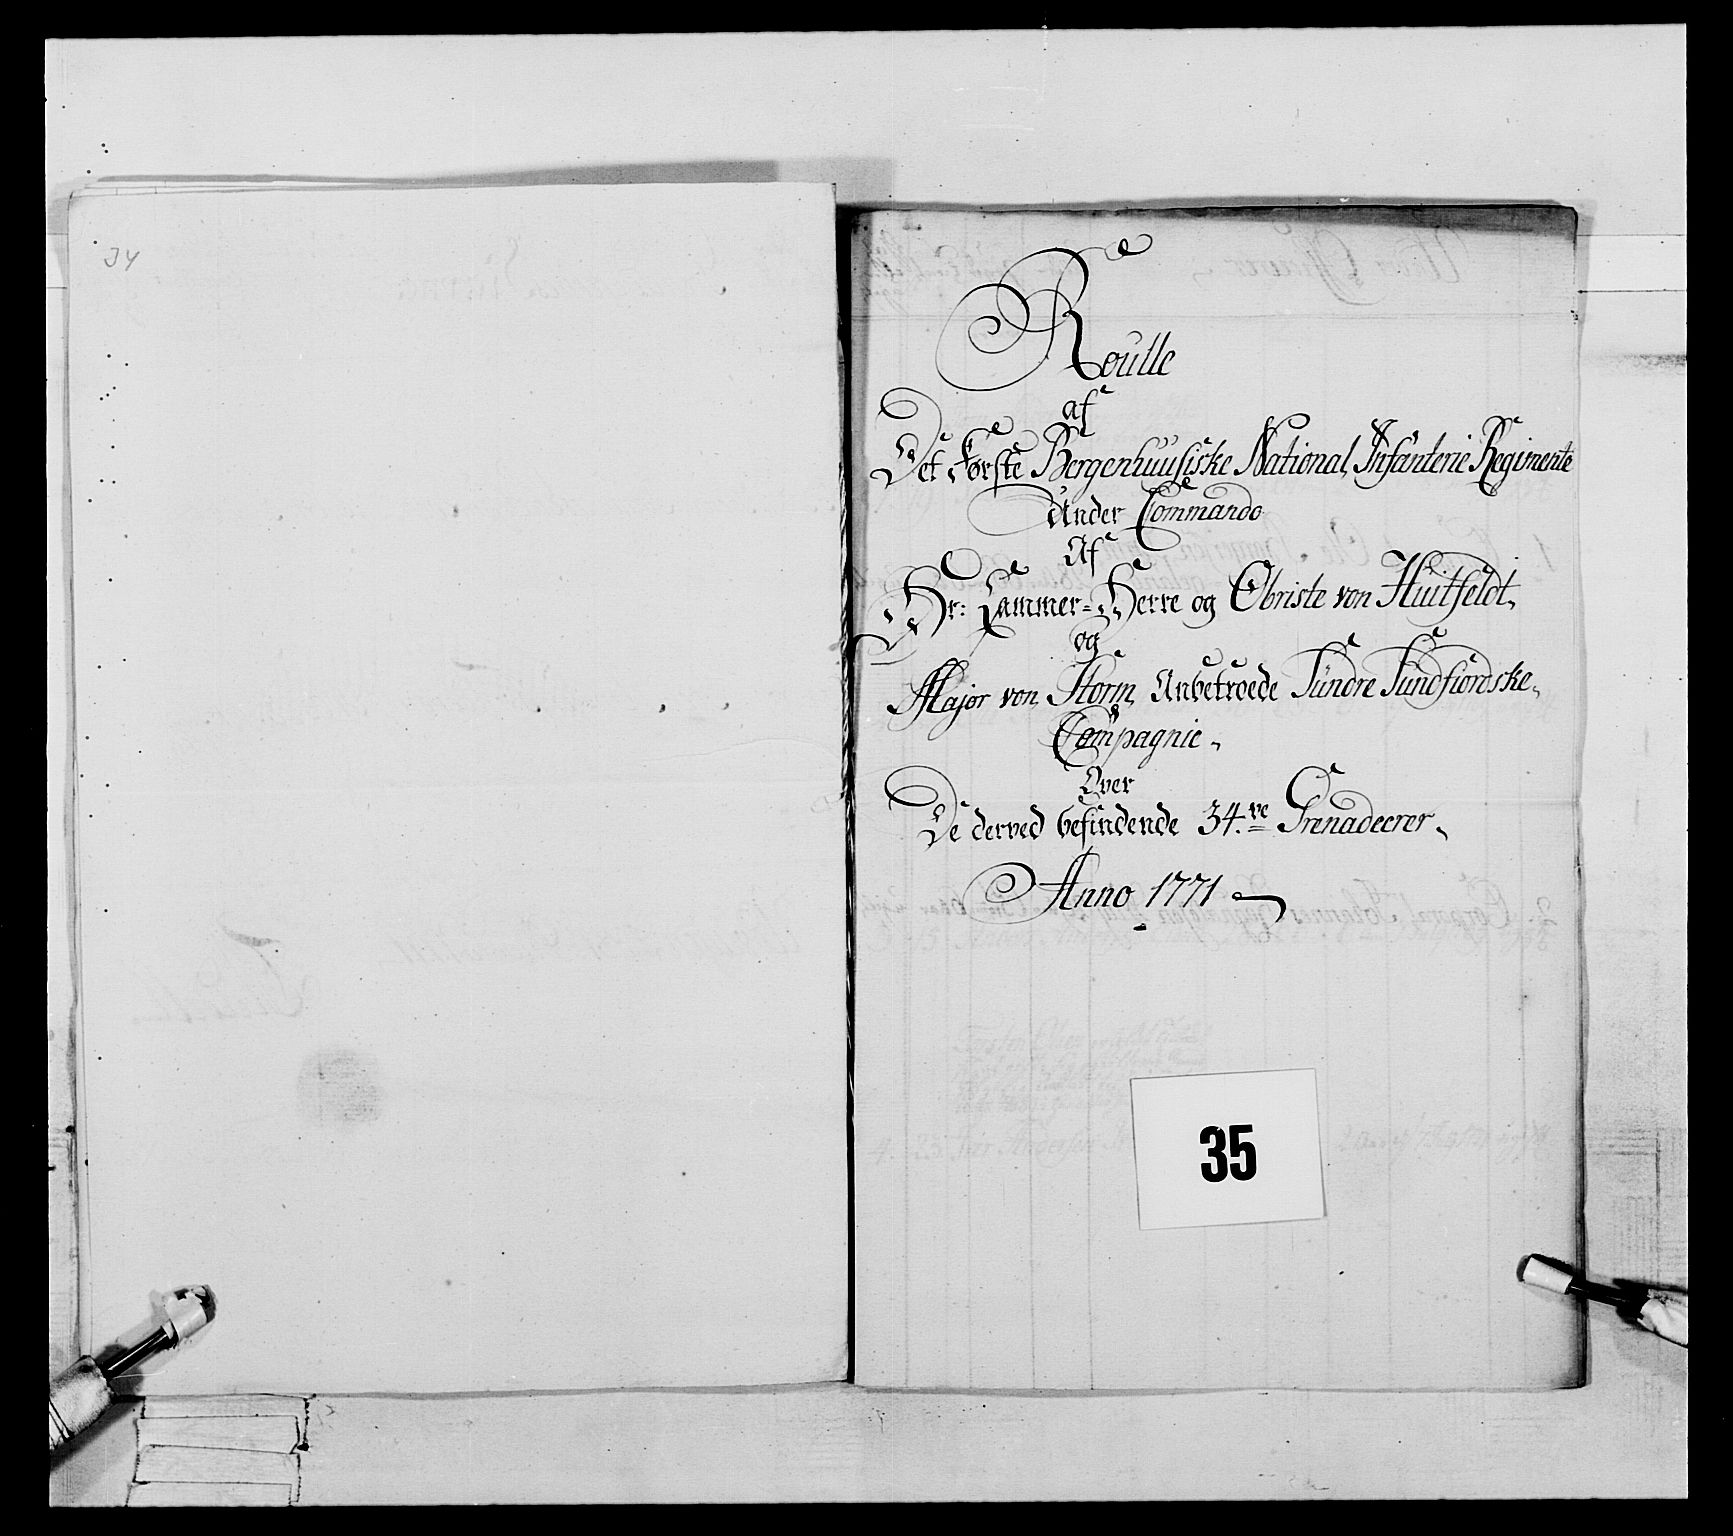 34
Roulle
af
Det Første Bergenhuusiske National Infanterie Regimente
Under Commando
Af
Hr: Cammer=Herre og Obriste von Huitfeldt,
og
Major von Storm, Anbetroede Sündre Sundfiordske,
Compagnie,
Over
De derved befindende 34.ve Grenadeerer,
Anno 1771
35